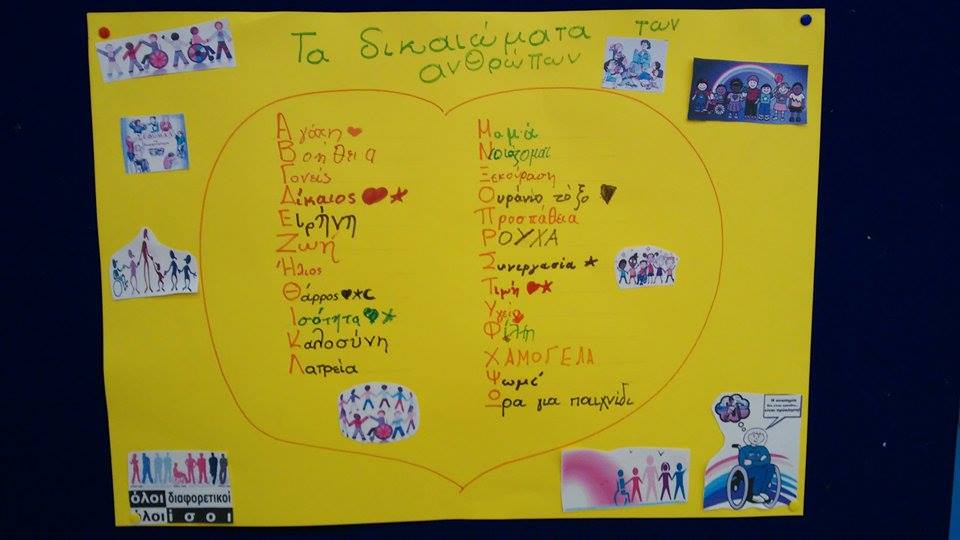 Τα δικαιώματα των
ανθρώπων
Αγάπη
Βοήθεια
Γονείς
Δίκαιος
Ειρήνη
Ζωή
Ήλιος
Θάρρος
Ισότητα
Καλοσύνη
Λατρεία
Μαμά
Νοιάζομαι
Ξεκούραση
Ουράνιο τόξο
Προσπάθεια
ΡΟΥΧΑ
Συνεργασία
Τιμή
Υγεία
Φίλη
ΧΑΜΟΓΕΛΑ
Ψωμί
Ώρα για παιχνίδι
όλοι διαφορετικοί
όλοι ίσοι